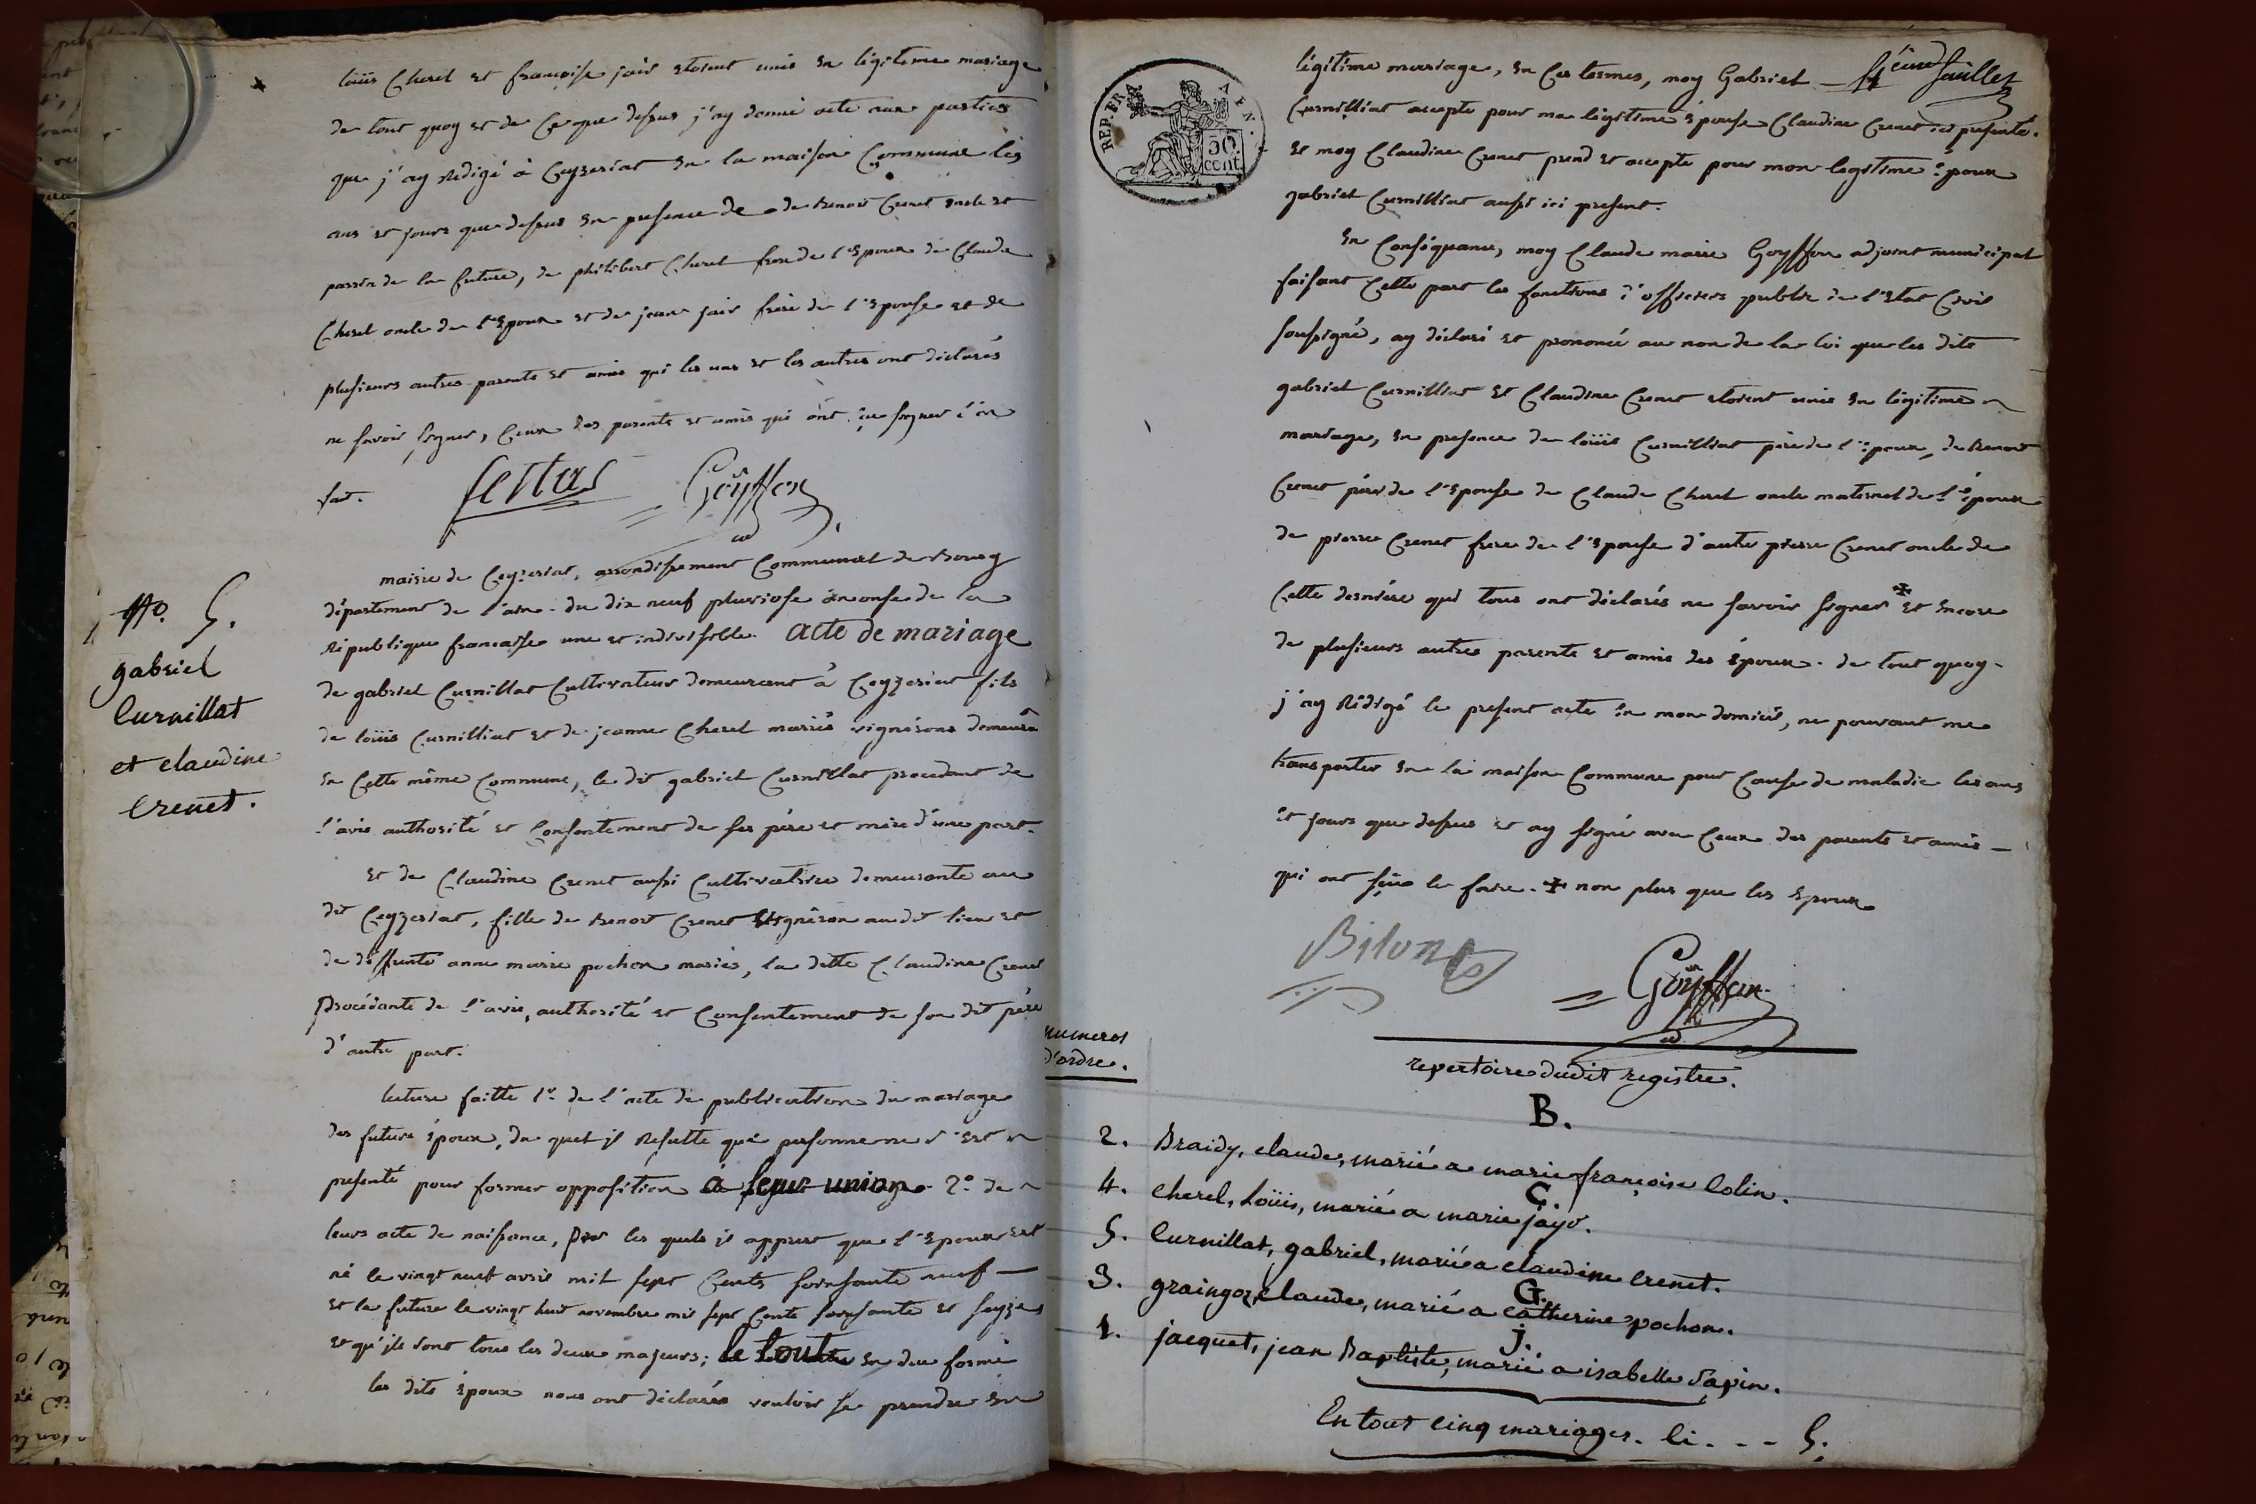 loüis Cherel et françoise jaïr etoient unis en légitime mariage
de tout quoy et de Ce que dessus j'ay donné acte aux parties
que j'ay Redigé à Ceyzeriat en la maison Commune les
ans et jours que dessus en presence de de Benoit Crenet oncle et
parrin de la future, de philibert Cherel frere de l'Epoux de Claude
Cherel oncle de l'Epoux et de jean jair frere de l'Epouse et de
plusieurs autres parents et amis qui les uns et les autres ont déclarés
ne savoir signer, Ceux des parents et amis qui ont sçu signer l'on
fait.
Goyffon
mairie de Ceyzeriat, arrondissement Communal de Bourg
département de l'ain. du dix neuf pluviose an onse de la
République francaise une et indivisible. acte de mariage
de gabriel Curnillat Cultivateur demeurant à Ceyzeriat fils
de loüis Curnilliat et de jeanne Cherel mariés vignérons demeurâ
en Cette même Commune, le dit gabriel Curnillat procedant de
l'avis authorité et Consentement de ses père et mère d'une part.
et de Claudine Crenet aussi Cultivatrice demeurante au
dit Ceyzeriat, fille de Benoit Crenet Vigneron au dit lieu et
de deffunte anne marie pochon mariés, la ditte Claudine Crenet
Procédante de l'avis, authorité et Consentement de son dit père
d'autre part.
lecture faitte 1° de l'acte de publication du mariage
des future époux, du quel il Resulte que personne ne s'est
presenté pour former opposition à leur union. 2° de
leurs acte de naissance, par les quels il appert que l'Epoux est
né le vingt neuf avril mil sept Cents soixsante neuf
et la future le vingt huit novembre mil sept Cents soixsante et seyze
et qu'ils sont tous les deux majeurs; le tout en due forme
les dits époux nous ont déclarés vouloir se prendre en
N°. 5.
gabriel
Curnillat
et claudine
Crenet.
REP. FRA
50
cent
légitime mariage, en Ces termes, moy Gabriel
feüillet
Curnilliat accepte pour ma légitime épouse Claudine Crenet ici presente.
et moy Claudine Crenet prend et accepte pour mon legitime époux
gabriel Curnilliat aussi ici present.
En Conséquance, moy Claude marie Goyffon adjoint municipal
faisant Cette part les fonctions d'officiers public de l'Etat Civil
soussigné, ay déclaré et prononcé au nom de la loi que les dits
gabriel Curnilliat et Claudine Crenet etoient unis en légitime
mariage, en presence de loüis Curnilliat père de l'époux, de Benoit
Crenet père de l'Epouse de Claude Cherel oncle maternel de l'époux
de pierre Crenet frere de l'Epouse d'autre pierre Crenet oncle de
Cette dernière qui tous ont déclarés ne savoir signer ✠ et encore
de plusieurs autres parents et amis des époux. de tout quoy
j'ay Rédigé le present acte en mon domicil, ne pouvant me
transporter en la maison Commune pour Cause de maladie les ans
et jours que dessus et ay signé avec Ceux des parents et amis
qui ont sçus le faire. ✠ non plus que les Epoux
Goyffon
repertoire dudit registre.
numeros
d'ordre.
B.
2. Braidy, claude, marié a marie françoise Colin.
C.
4. cherel, Loüis, marié a marie jayr.
5. Curnillat, gabriel, marié a claudine Crenet.
G.
3. graingoz, claude, marié a catherine pochon.
j.
1. jacquet, jean Baptiste, marié a isabelle Sapin.
En tout cinq mariages. Ci. - - 5.